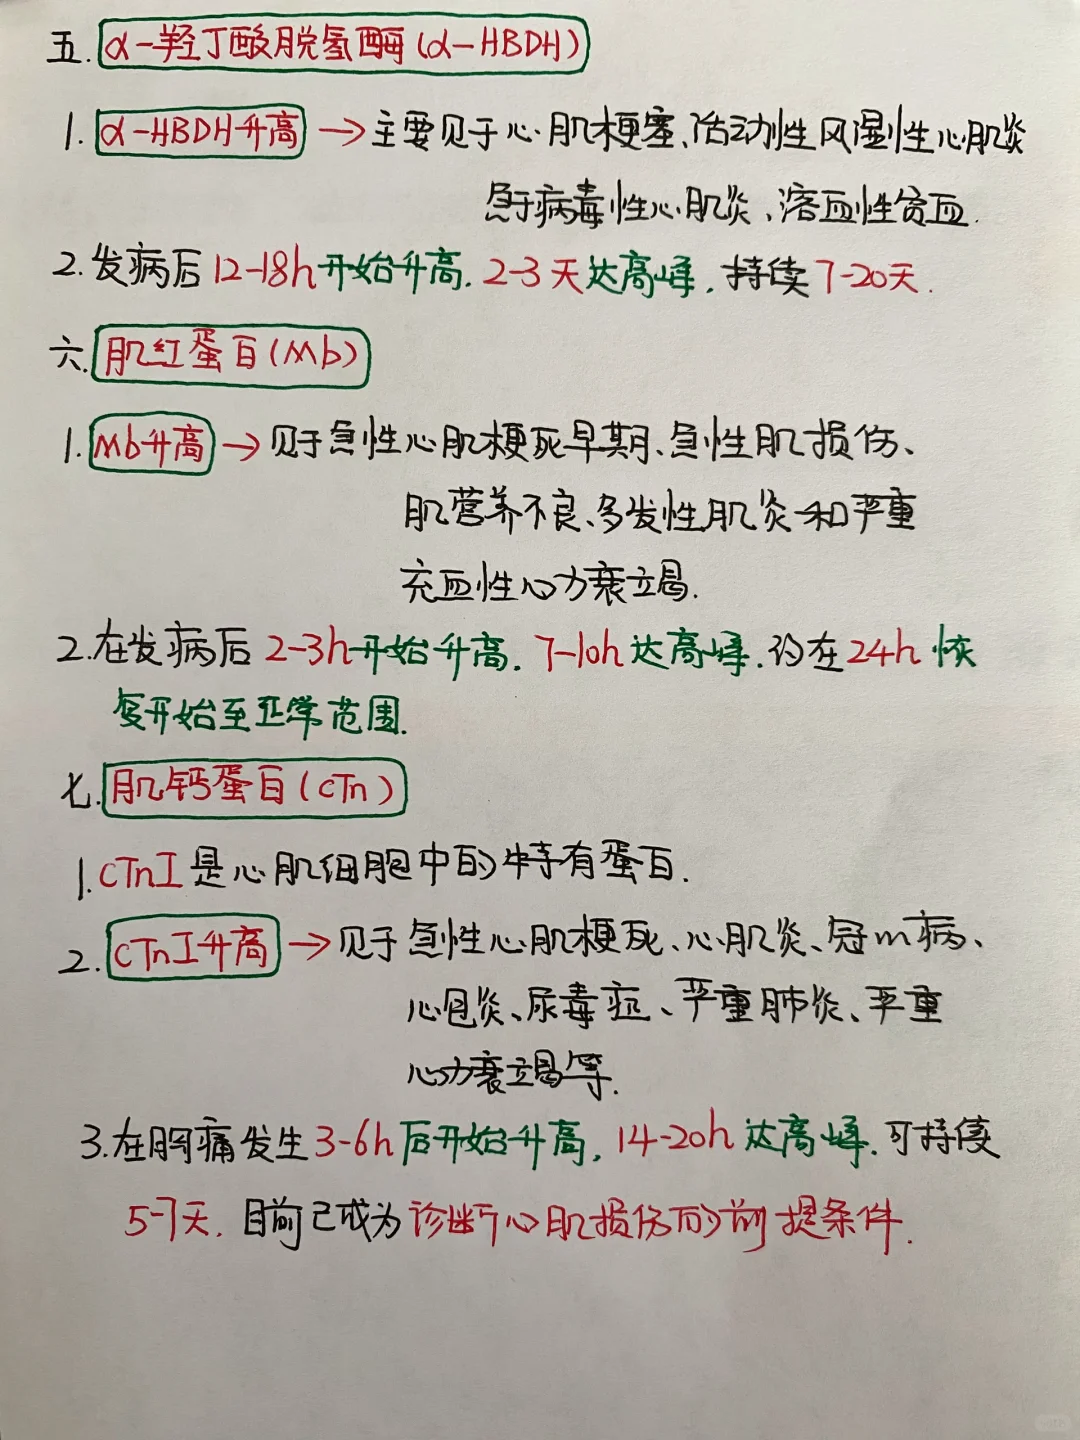 五. α-羟丁酸脱氢酶(α-HBDH)
1. α-HBDH升高 → 主要见于心肌梗塞、活动性风湿性心肌炎
急于病毒性心肌炎、溶血性贫血.
2. 发病后12-18h开始升高. 2-3天达高峰. 持续7-20天.
六. 肌红蛋白(Mb)
1. Mb升高 → 见于急性心肌梗死早期、急性肌损伤、
肌营养不良、多发性肌炎和严重
充血性心力衰竭.
2. 在发病后2-3h开始升高. 7-10h达高峰. 约在24h恢
复开始至正常范围.
七. 肌钙蛋白(cTn)
1. cTnI是心肌细胞中的特有蛋白.
2. cTnI升高 → 见于急性心肌梗死、心肌炎、冠m病、
心包炎、尿毒症、严重肺炎、严重
心力衰竭等.
3. 在胸痛发生3-6h后开始升高, 14-20h达高峰. 可持续
5-7天. 目前已成为诊断心肌损伤的前提条件.